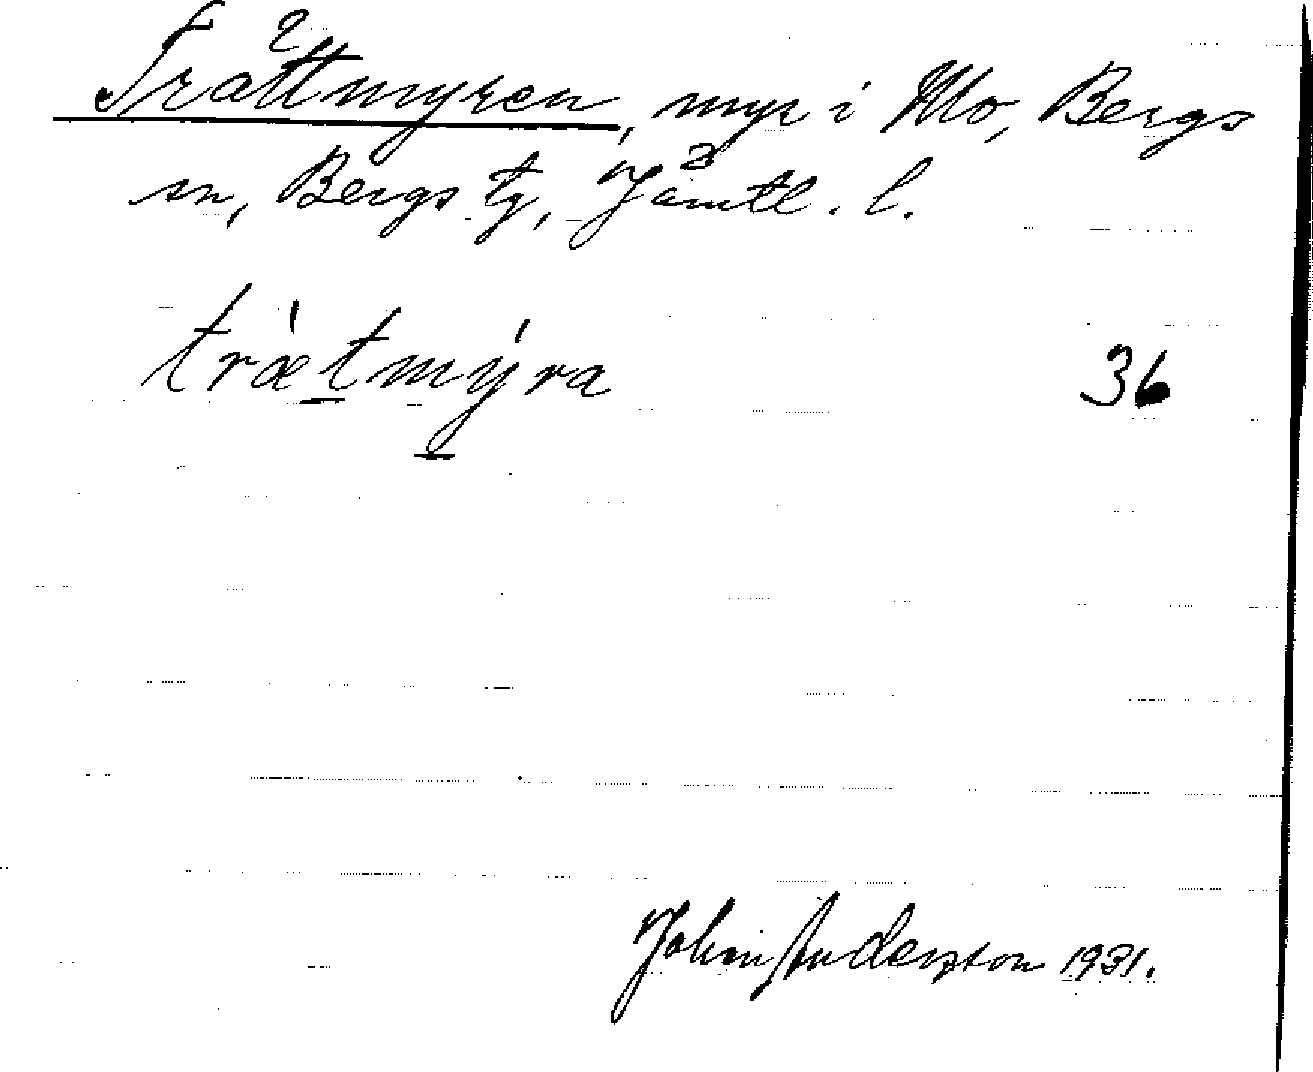 Trättmyren, myr i Mo, Bergs
sn, Bergs tg, Jämtl. l.
trǽt̠mý̠ra 36
John Andersson 1931.